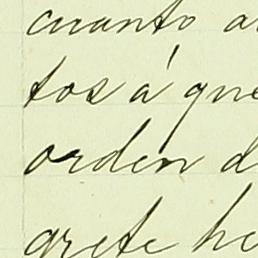 cuanto a
tos á que
orden d
grete he